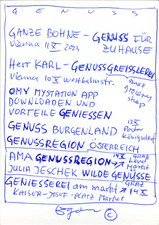 GENUSS
GANZE BOHNE - GENUSS FÜR
Vienna ZUHAUSE
HERR KARL - GENUSSGREISSLEREI
Vienna 10 Westbahnstr.
OMV MYSTATION APP
DOWNLOADEN UND
VORTEILE GENIESSEN
GENUSS BURGENLAND
GENUSSREGION ÖSTERREICH
AMA GENUSSREGION
JULIA JESCHEK WILDE GENÜSSE
GENIESSEREI am markt
KAISER-JOSEF-PLATZ Market
©